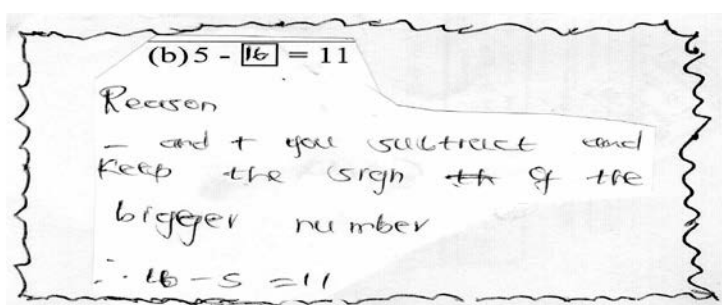 (b) 5 - 16 = 11
Reason
- and + you subtract and
keep the sign th of the
bigger number
∴ 16 - 5 = 11